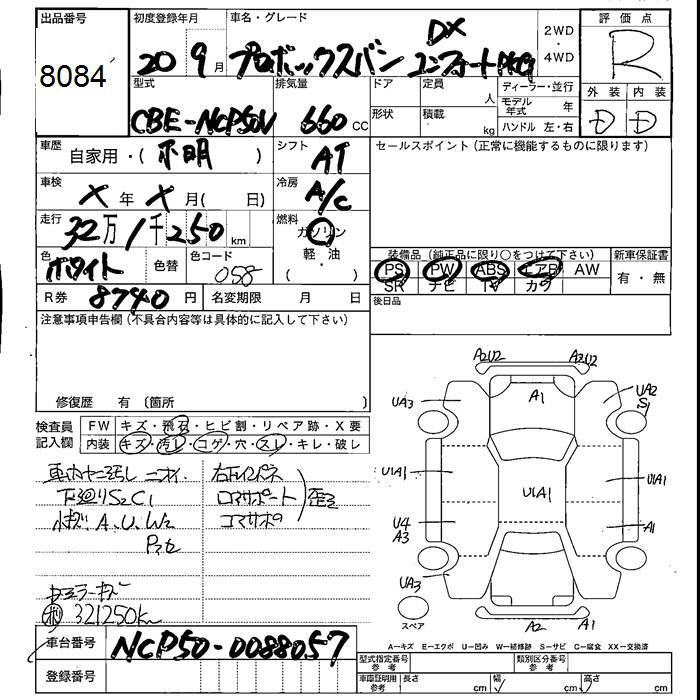 出品番号 初度登録年月 車名・グレード 評価点
8084
20 9月 プロボックスバン DX コンフォートPKG 2WD ・ 4WD R
型式 排気量 ドア 定員 人 ディーラー・並行 外装 内装
CBE-NCP50V 660 CC 形状 積載 kg モデル年式 年 D D
ハンドル 左・右
車歴 自家用・( 不明 ) シフト AT セールスポイント(正常に機能するものに限ります)
車検 X年 X月( 日) 冷房 A/C
走行 32万 1千 250 km 燃料 ガソリン 軽・油 ( )
色 ホワイト 色替 色コード 058
装備品(純正品に限り○をつけて下さい) 新車保証書
PS PW ABS エアB AW 有・無
SR ナビ TV カワ
R券 8740円 名変期限 月 日 後日品
注意事項申告欄(不具合内容等は具体的に記入して下さい)
修復歴 有 〔箇所 〕
検査員記入欄 FW キズ・飛石・ヒビ割・リペア跡・X要
内装 キズ・汚レ・コゲ・穴・スレ・キレ・破レ
車内ヤニ汚レ ニオイ.
下廻りS2C1
A.U.W2
コアサポート
321250km
A2U2 A2U2
UA3 A1 UA2 S1
U1A1 U1A1 U1A1
U4 A3 A1
UA3
スペア A2 A1
A=キズ E=エクボ U=凹み W=補修跡 S=サビ C=腐食 XX=交換済
車台番号 NCP50-0088057
登録番号
型式指定番号 参考 類別区分番号 参考
車庫証明用 参考 長さ cm 幅 cm 高さ cm